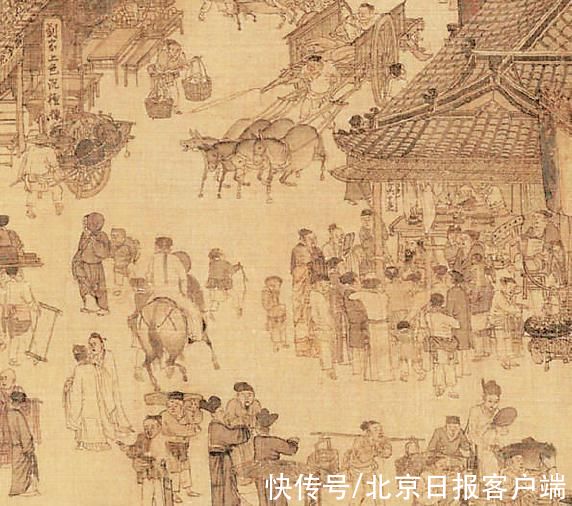 劉家上色沉檀
快传号/北京日报客户端